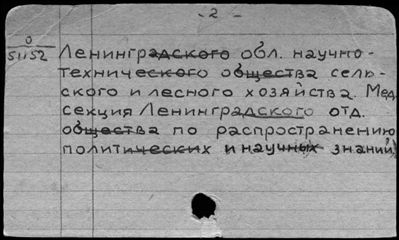 - 2 -
0
51152
Ленинградского обл. научно-
технического общества сель-
ского и лесного хозяйства. Мед.
секция Ленинградского отд.
общества по распространению
политических и научных знаний)